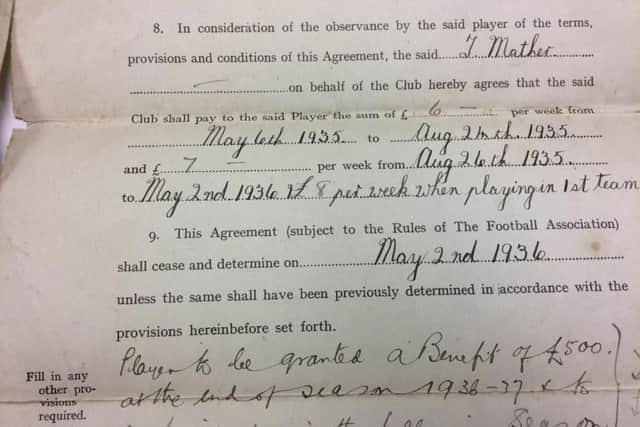 8. In consideration of the observance by the said player of the terms,
provisions and conditions of this Agreement, the said T. Mather
on behalf of the Club hereby agrees that the said
Club shall pay to the said Player the sum of £ 6 — per week from
May 6th 1935 to Aug 24th. 1935
and £ 7 — per week from Aug 26th 1935
to May 2nd 1936 & £8 per week when playing in 1st team
9. This Agreement (subject to the Rules of The Football Association)
shall cease and determine on May 2nd 1936
unless the same shall have been previously determined in accordance with the
provisions hereinbefore set forth.
Fill in any
other pro-
visions
required.
Player to be granted a Benefit of £500.
at the end of season 1936-37 & to
Season